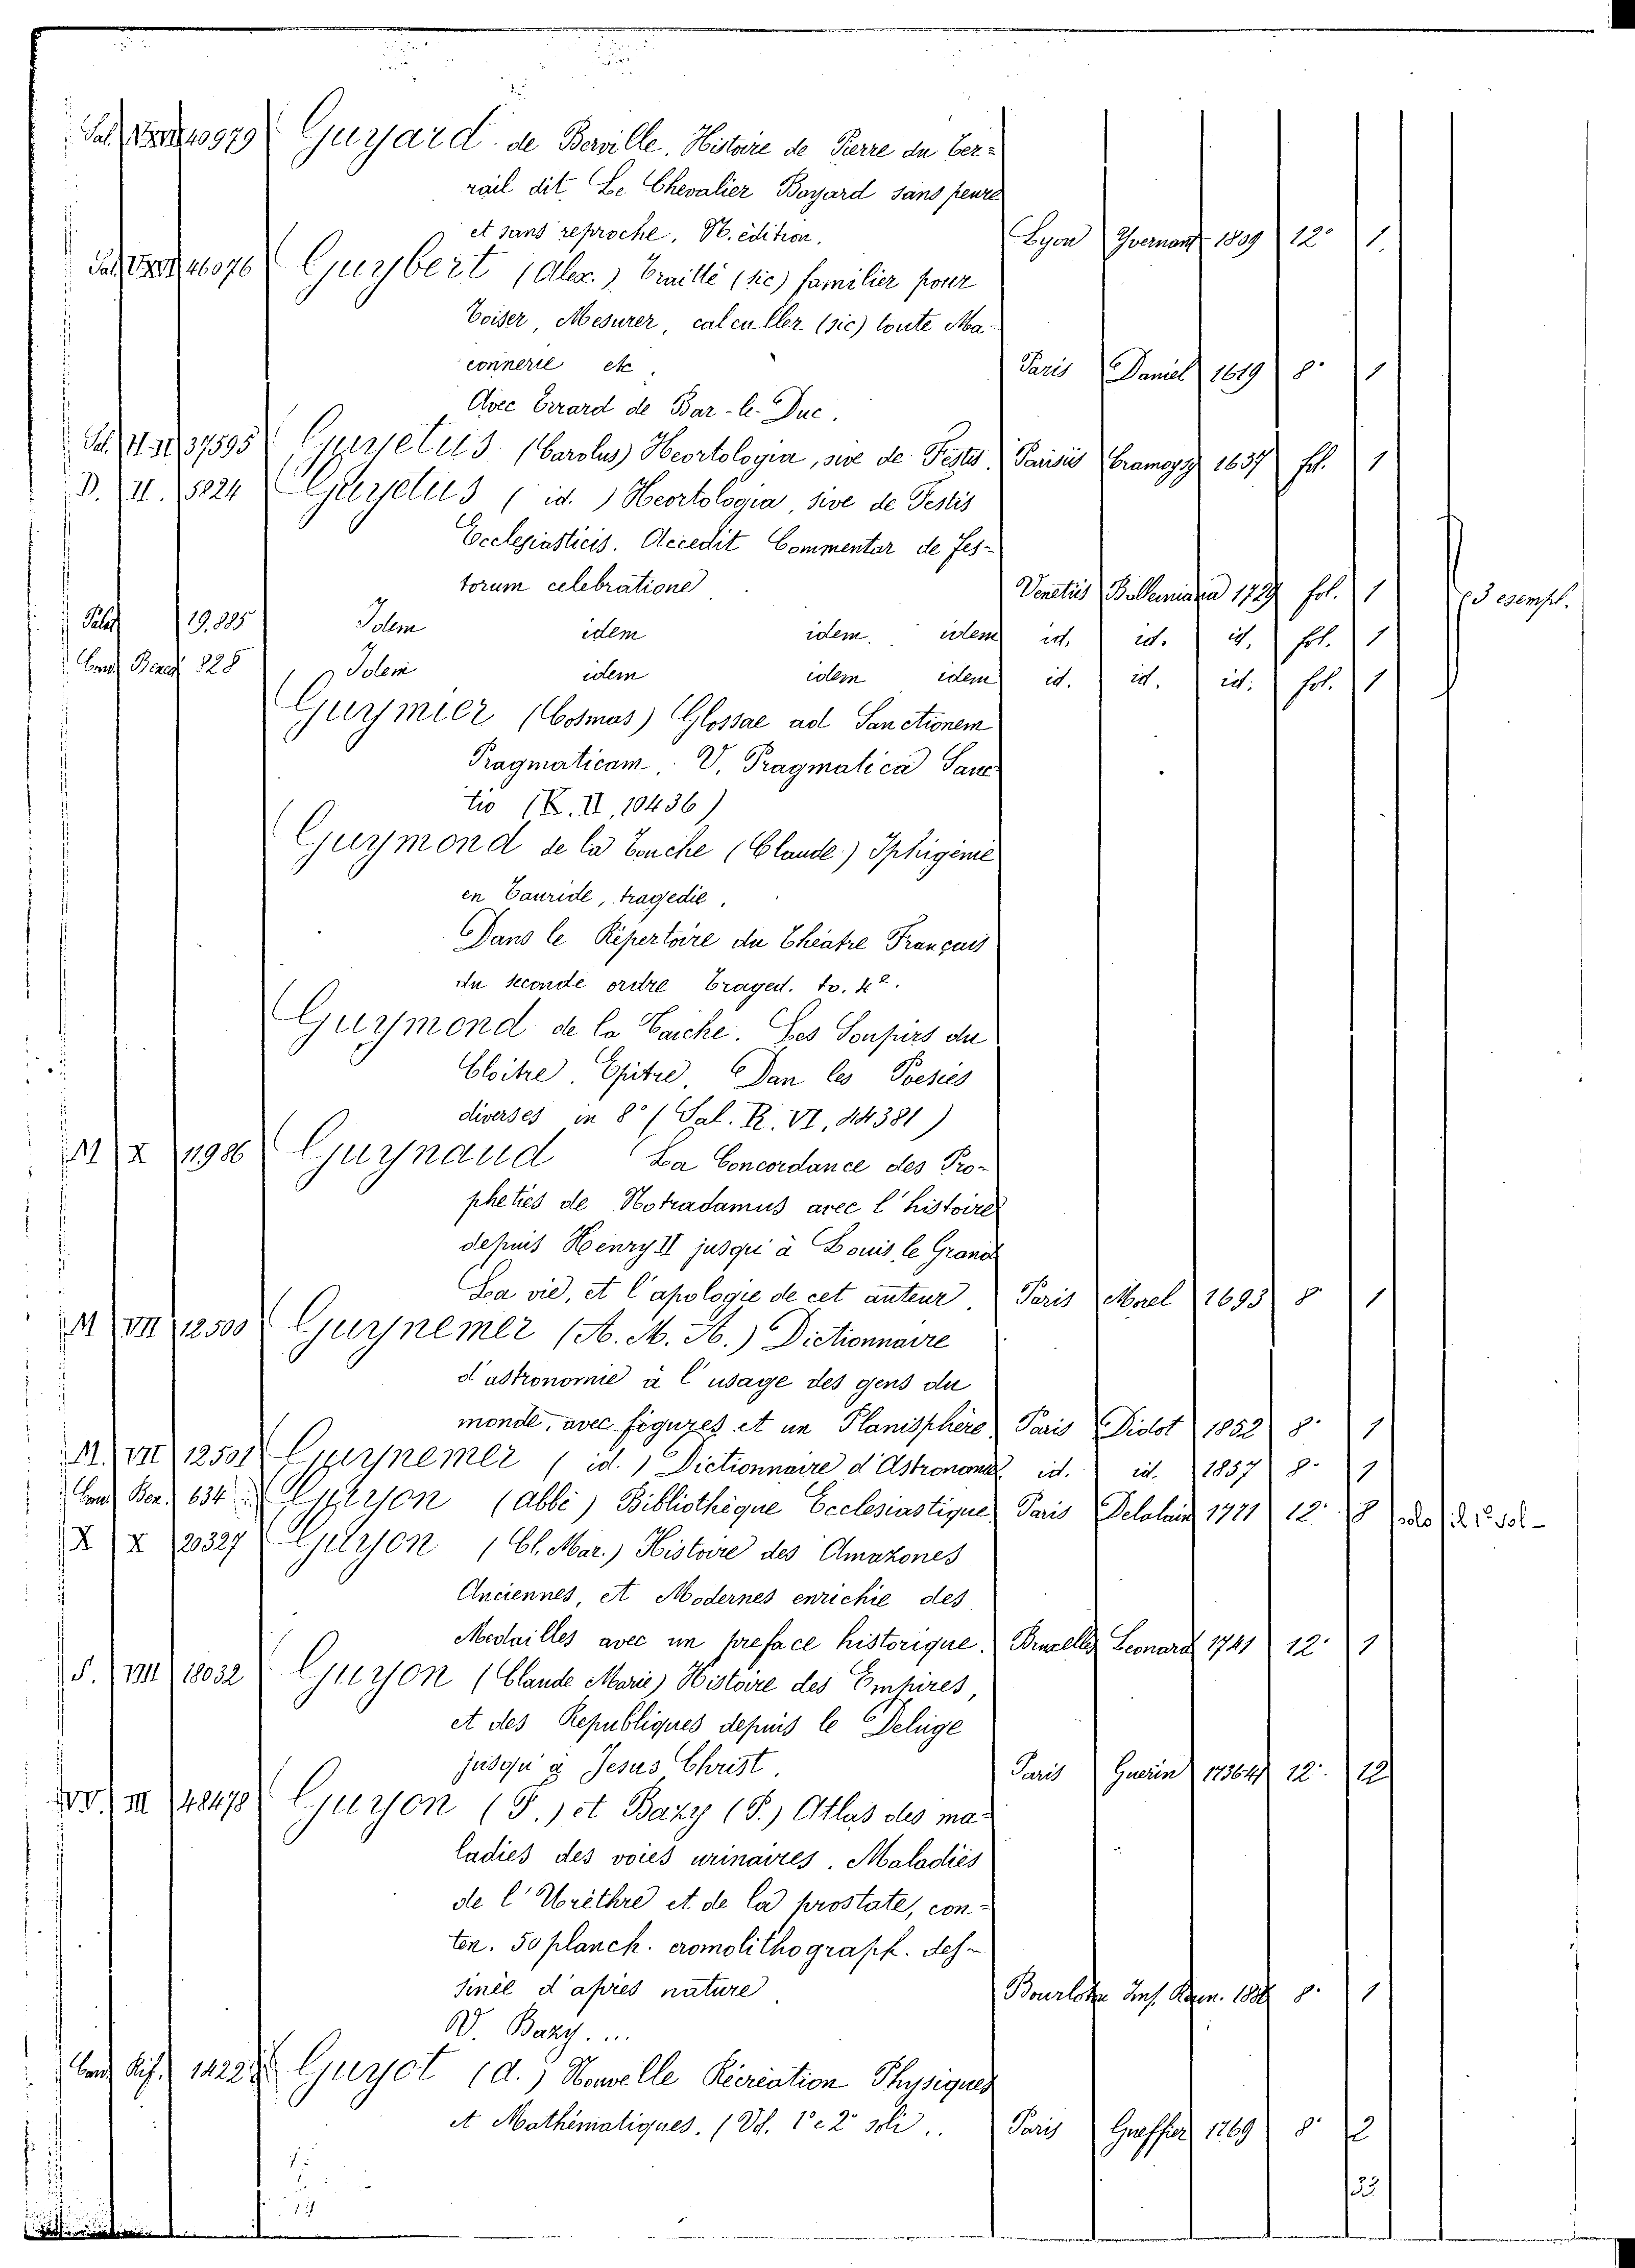 Guyard de Berville. Histoire de Pierre du Ter-
rail dit Le Chevalier Bayard sans peure
et sans reproche. N. édition. Lyon Yvernant 1809 12° 1.
Guybert (Alex.) Traitté (sic) familier pour
Toiser, Mesurer, calculler (sic) toute Ma-
connerie etc. Paris Daniel 1619 8° 1
Avec Errard de Bar-le-Duc.
37595 Guyetus (Carolus) Heortologia, sive de Festis Parisiis Cramoysy 1637 fol. 1
D. II. 5824 Guyetus (id.) Heortologia, sive de Festis
Ecclesiasticis. Accedit Commentar de fes-
torum celebratione Venetiis 1729 fol. 1 3 esempl.
19.885 Idem idem idem idem id. id. id. fol. 1
828 Idem idem idem idem id. id. id. fol. 1
Guymier (Cosmas) Glossae ad Sanctionem
Pragmaticam. V. Pragmatica Sanc
tio (K. II, 10436)
Guymond de la Touche (Claude) Iphigénie
en Tauride, tragedie.
Dans le Répertoire du Théatre Français
du seconde ordre Traged. to. 4°.
Guymond de la Touche. Les Soupirs du
Cloitre. Epitre. Dan les Poesies
diverses in 8° (Sal. R. VI, 44381)
M X 11986 Guynaud La Concordance des Pro-
pheties de Notradamus avec l'histoire
depuis Henry II jusqu'à Louis le Grand
La vie, et l'apologie de cet auteur. Paris Morel 1693 8° 1
M VIII 12500 Guynemer (A. M. A.) Dictionnaire
d'astronomie à l'usage des gens du
monde, avec figures et un Planisphère Paris Didot 1852 8° 1
M. VIII 12501 Guynemer (id.) Dictionnaire d'Astronomie id. id. 1857 8° 1
634 Guyon (abbé) Bibliothèque Ecclesiastique Paris Delalain 1771 12° 8
X X 20327 Guyon (Cl. Mar.) Histoire des Amazones
Anciennes, et Modernes enrichie des
Medailles avec un preface historique. Bruxelles Leonard 1741 12° 1
S. VIII 18032 Guyon (Claude Marie) Histoire des Empires,
et des Republiques depuis le Deluge
jusqu'à Jesus Christ. Paris Guerin 12° 12
III 48478 Guyon (F.) et Bazy (P.) Atlas des ma-
ladies des voies urinaires. Maladies
de l'Urèthre et de la prostate, con-
ten. 50 planch. cromolithograph. des-
sinée d'après nature 8° 1
V. Bazy. ...
Guyot (d.) Nouvelle Récréation Physiques
et Mathématiques. (Vol. 1° e 2° soli.. Paris Gueffier 1769 8° 2
33